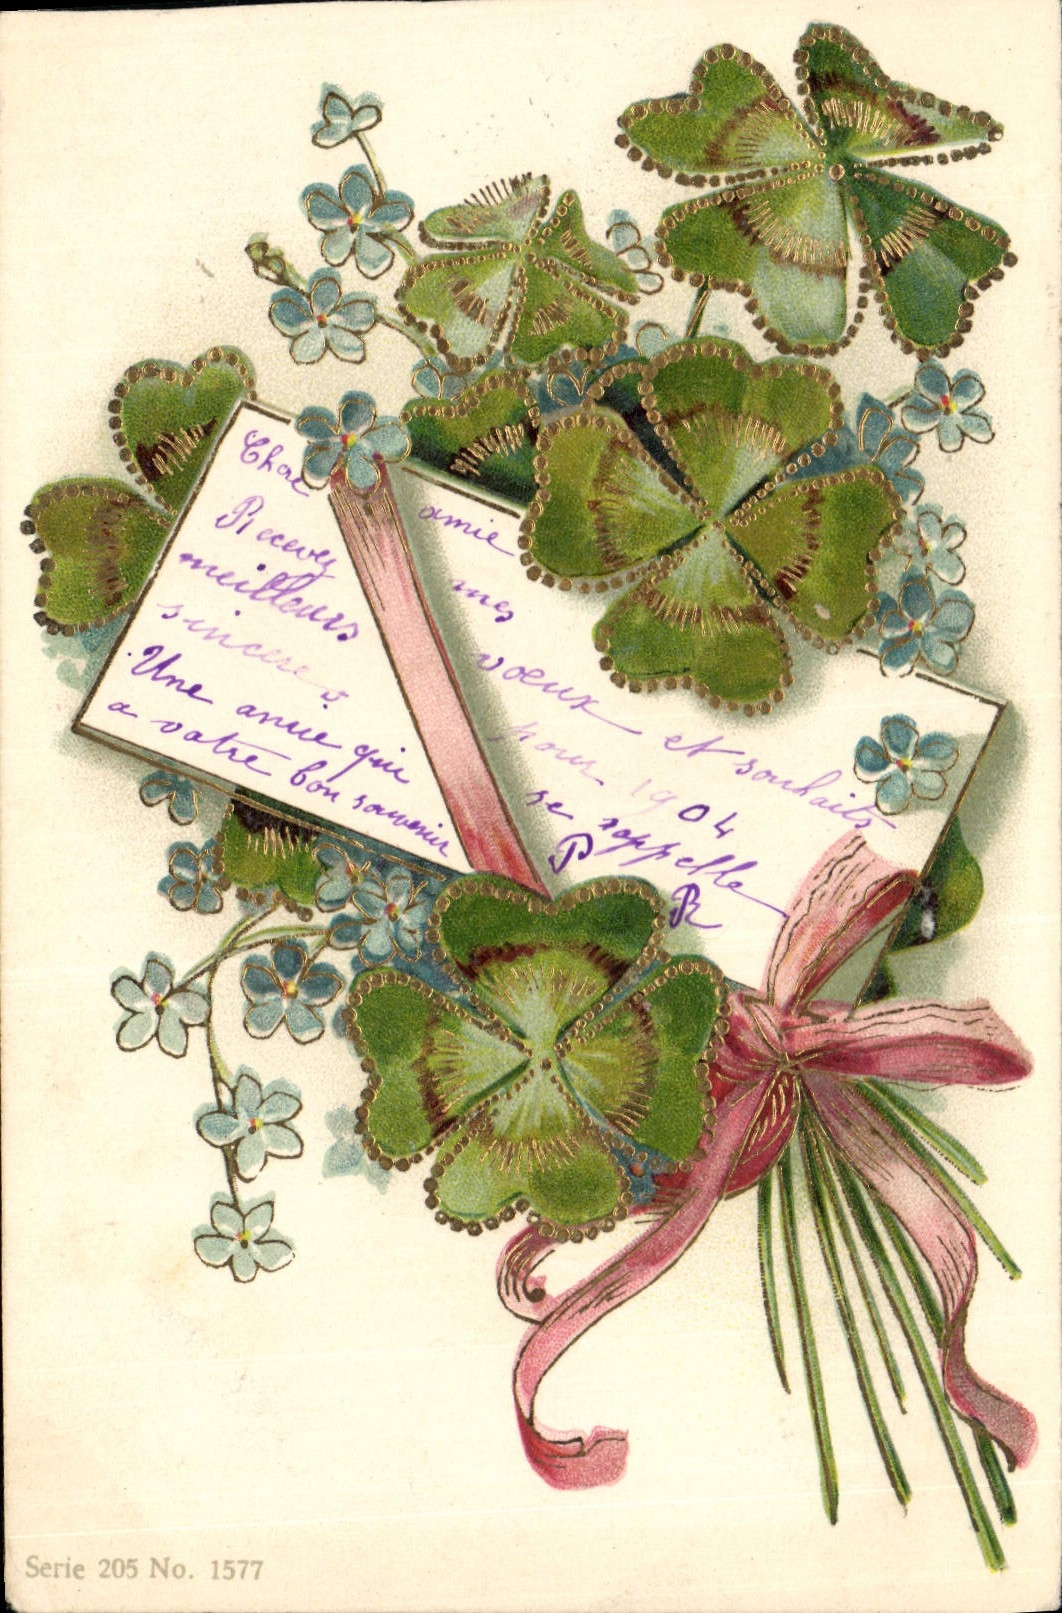 Chere amie
Recevez mes
meilleurs voeux et souhaits
sinceres pour 1904
Une amie qui se rappelle
a votre bon souvenir P R
Serie 205 No. 1577